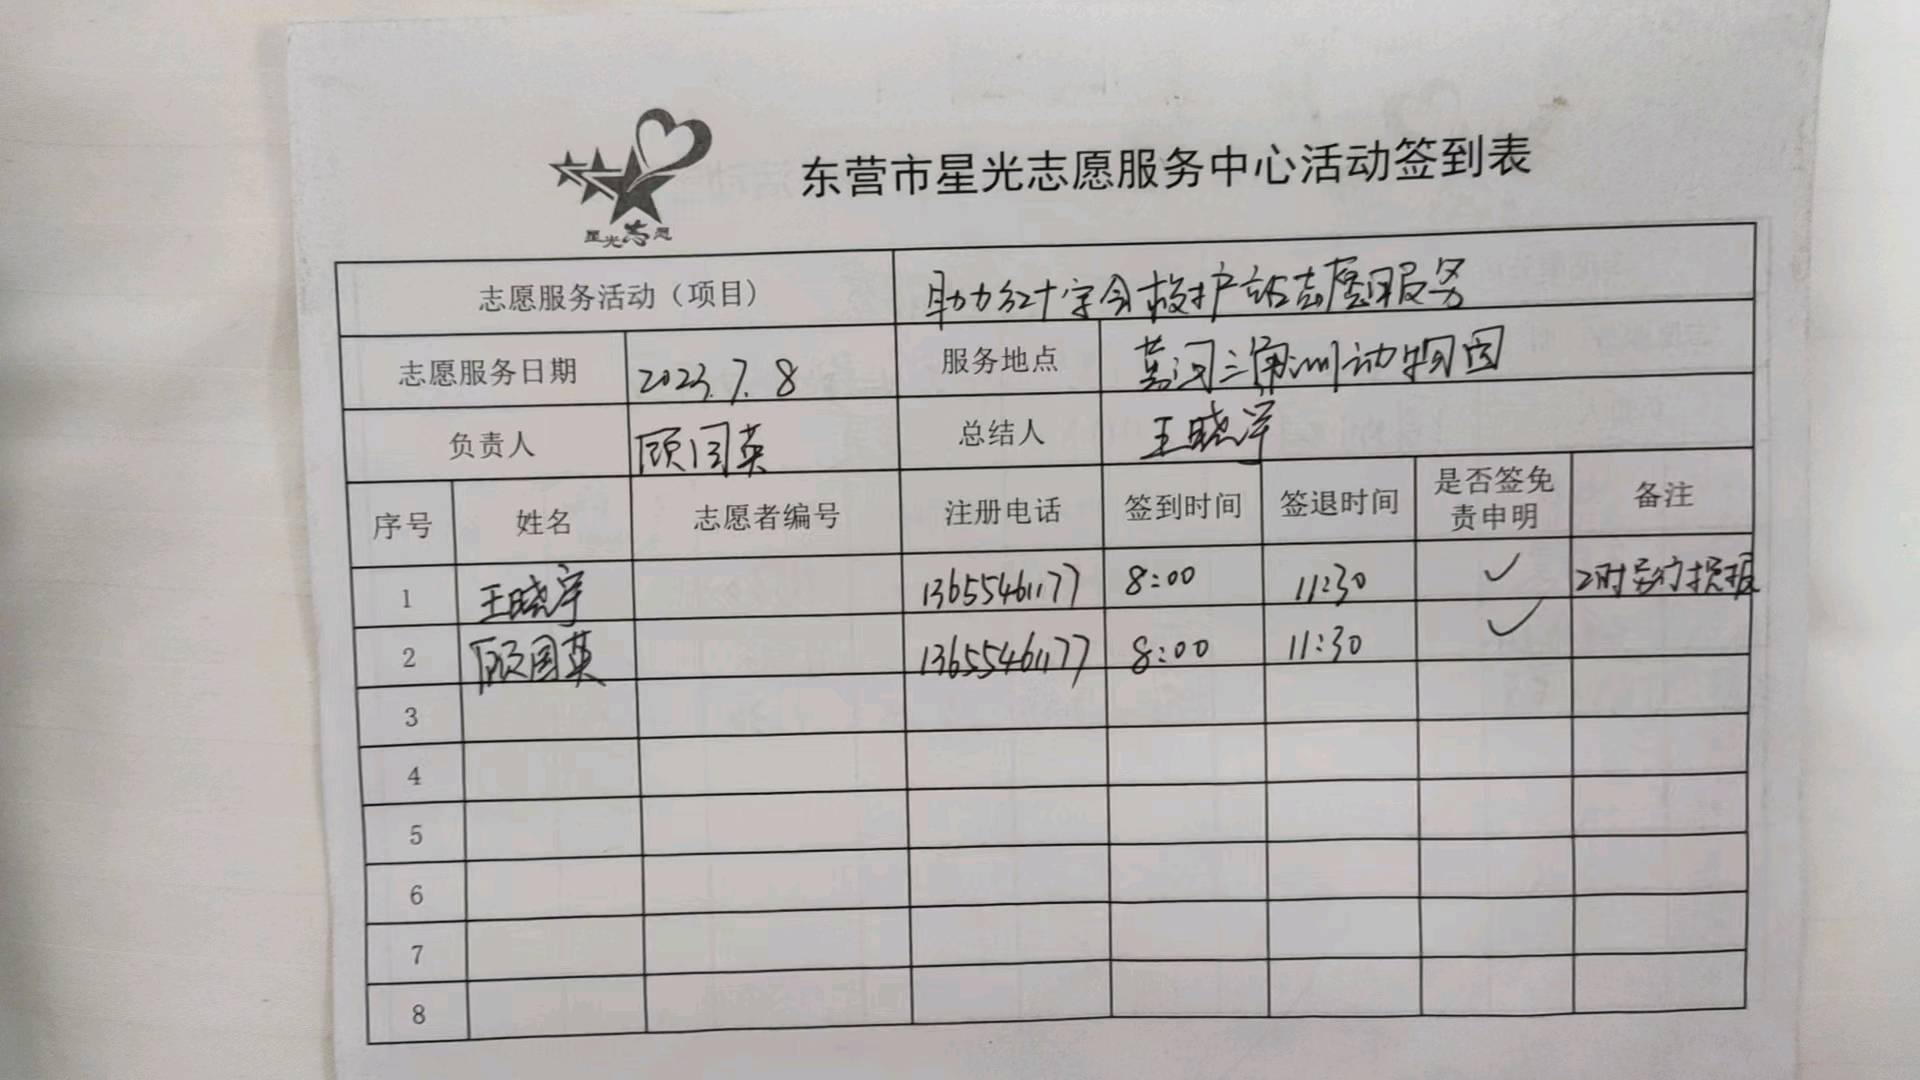 东营市星光志愿服务中心活动签到表
星光志愿
志愿服务活动（项目） 助力红十字会救护站志愿服务
志愿服务日期 2023.7.8 服务地点 黄河三角洲动物园
负责人 顾国英 总结人 王晓宇
序号 姓名 志愿者编号 注册电话 签到时间 签退时间 是否签免责申明 备注
1 王晓宇 13655461177 8:00 11:30 ✓ 2时
2 顾国英 13655461177 8:00 11:30 ✓
3
4
5
6
7
8